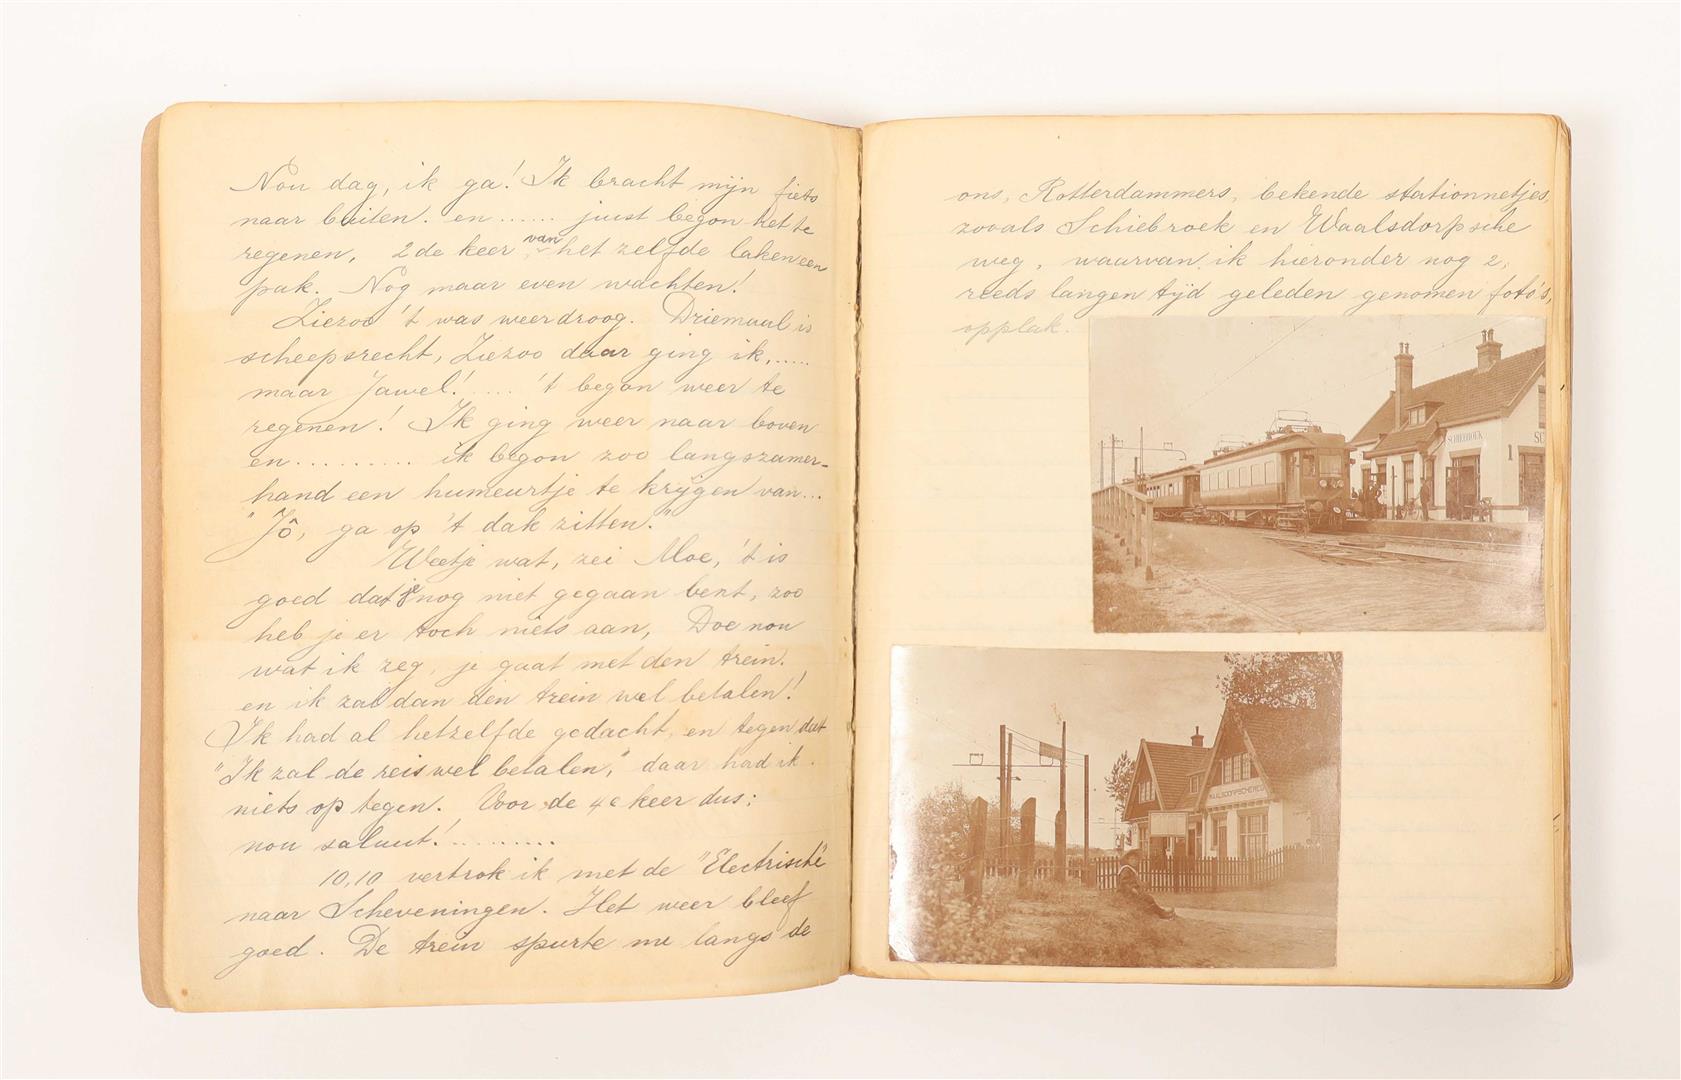 Nou dag, ik ga! Ik bracht mijn fiets
naar buiten. en ...... juist begon het te
regenen, 2de keer van het zelfde laken een
pak. Nog maar even wachten!
Ziezoo 't was weer droog. Driemaal is
scheepsrecht, Ziezoo daar ging ik,.....
maar Jawel!..... 't begon weer te
regenen! Ik ging weer naar boven
en.......... ik begon zoo langszamer-
hand een humeurtje te krijgen van...
"Jô, ga op 't dak zitten."
Weetje wat, zei Moe, 't is
goed dat je nog niet gegaan bent, zoo
heb je er toch niets aan, Doe nou
wat ik zeg, je gaat met den trein.
en ik zal dan den trein wel betalen!
Ik had al hetzelfde gedacht, en tegen dat
"Ik zal de reis wel betalen," daar had ik
niets op tegen. Voor de 4e keer dus:
nou saluut!..........
10,10 vertrok ik met de "Electrische"
naar Scheveningen. Het weer bleef
goed. De trein spurte me langs de
ons, Rotterdammers, bekende stationnetjes,
zooals Schiebroek en Waalsdorpsche
weg, waarvan ik hieronder nog 2,
reeds langen tijd geleden genomen foto's,
opplak.
SCHIEBROEK
1
SC
WAALSDORPSCHEWEG